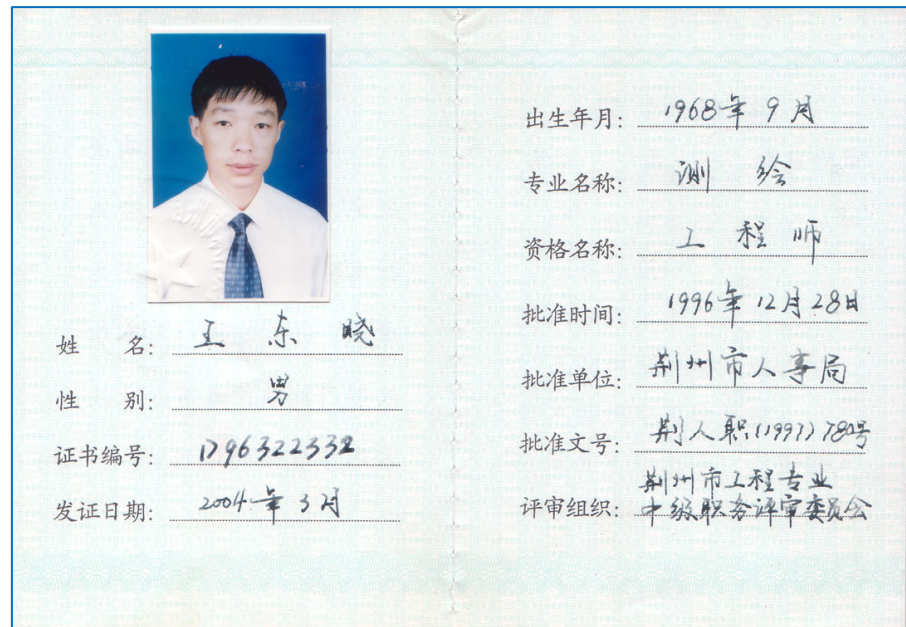 姓 名: 王东晓
性 别: 男
证书编号: 1796322332
发证日期: 2004年3月
出生年月: 1968年9月
专业名称: 测绘
资格名称: 工程师
批准时间: 1996年12月28日
批准单位: 荆州市人事局
批准文号: 荆人职(1997)780号
评审组织: 荆州市工程专业
中级职务评审委员会